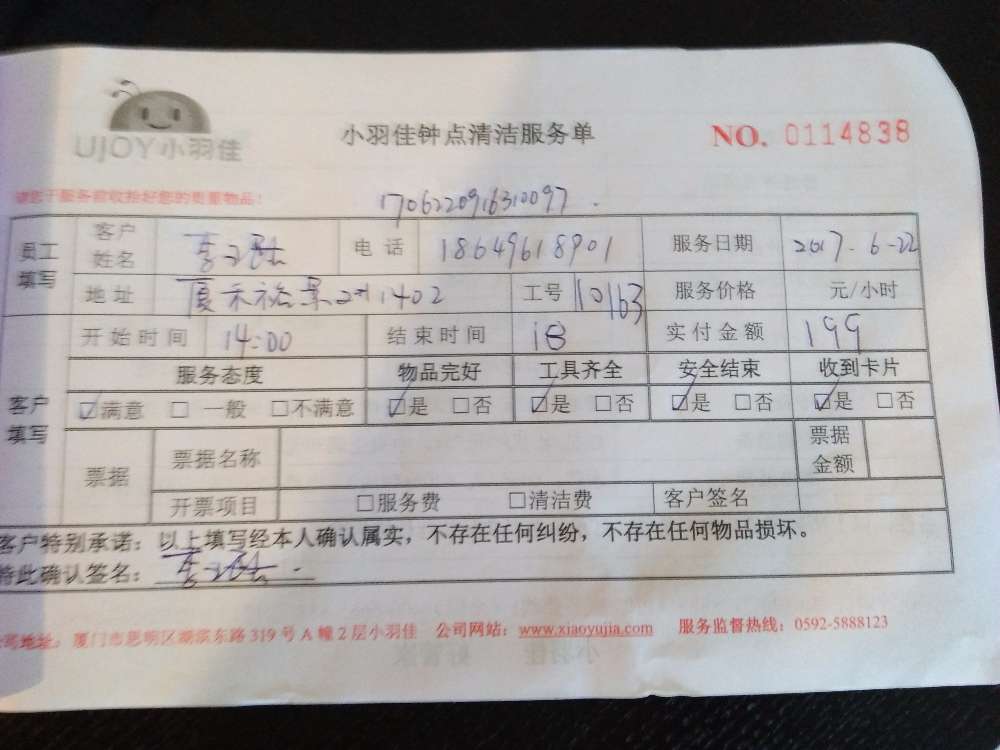 UJOY小羽佳
小羽佳钟点清洁服务单
NO. 0114838
请您于服务前收拾好您的贵重物品!
1706220916310097
员工填写 客户姓名 电话 18649618901 服务日期 2017.6-22
地址 厦禾裕景2# 1402 工号 10163 服务价格 元/小时
客户填写 开始时间 14:00 结束时间 18 实付金额 199
服务态度 物品完好 工具齐全 安全结束 收到卡片
☑满意 □一般 □不满意 ☑是 □否 ☑是 □否 ☑是 □否 ☑是 □否
票据 票据名称 票据金额
开票项目 □服务费 □清洁费 客户签名
客户特别承诺：以上填写经本人确认属实，不存在任何纠纷，不存在任何物品损坏。
特此确认签名：
公司地址：厦门市思明区湖滨东路319号A幢2层小羽佳 公司网站：www.xiaoyujia.com 服务监督热线：0592-5888123